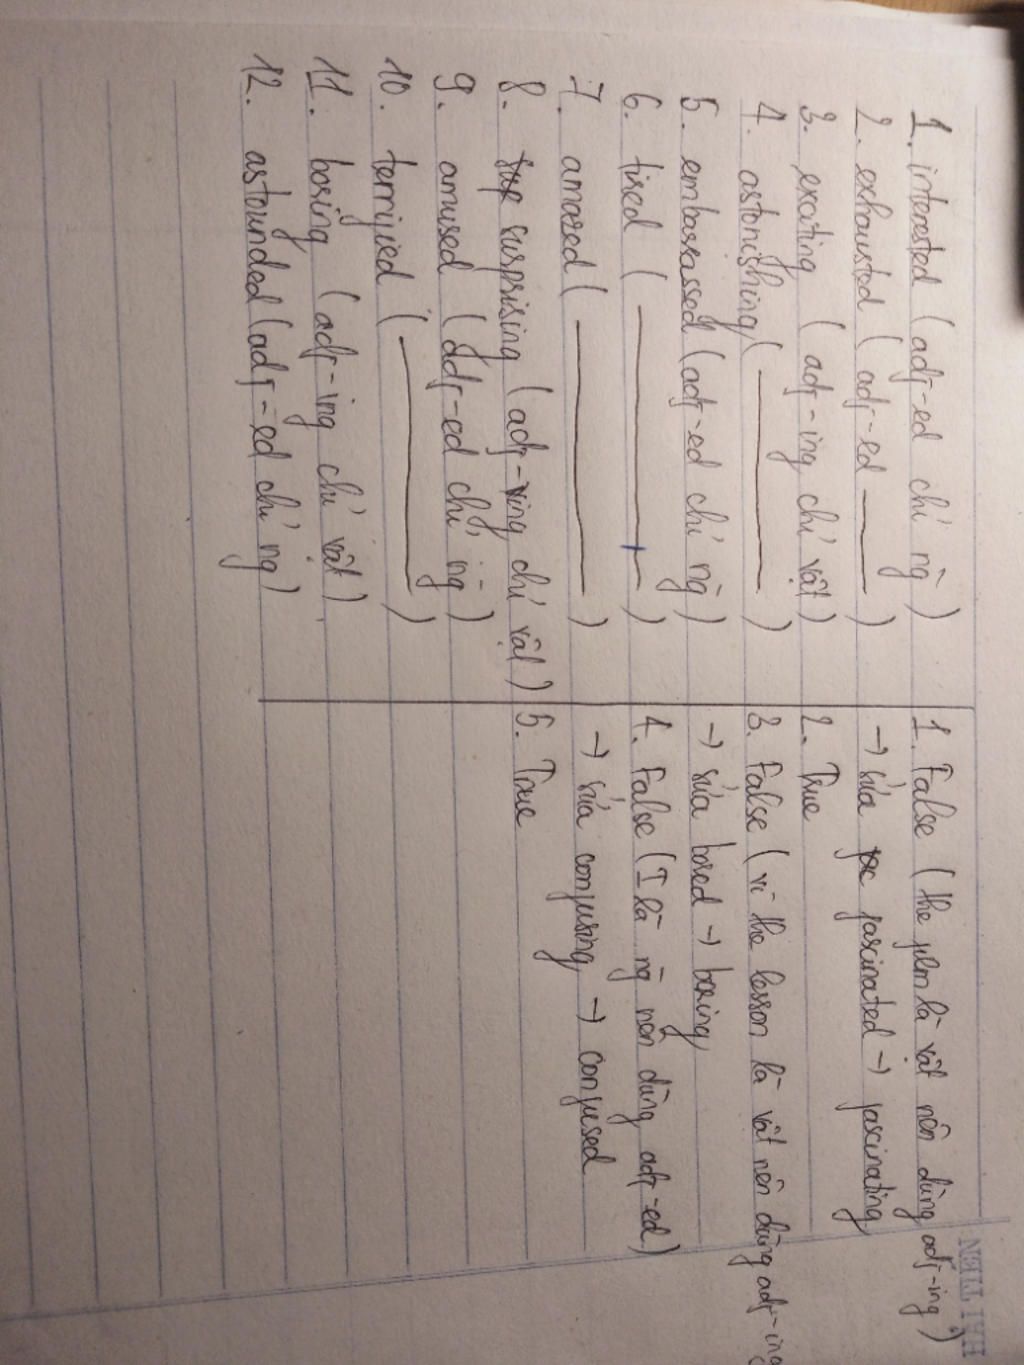 1. interested (adj-ed chỉ ng̃)
2. exhausted (adj-ed ——)
3. exciting (adj-ing chỉ vật)
4. astonishing (——)
5. embarassed (adj-ed chỉ ng̃)
6. tired (——)
7. amazed (——)
8. surprising (adj-ing chỉ vật)
9. amused (adj-ed chỉ ng̃)
10. terrified (——)
11. boring (adj-ing chỉ vật)
12. astounded (adj-ed chỉ ng)
1. False (the film là vật nên dùng adj-ing)
→ sửa fascinated → fascinating
2. True
3. False (vì the lesson là vật nên dùng adj-ing
→ sửa bored → boring
4. False (I là ng̃ nên dùng adj-ed)
→ sửa confusing → confused
5. True
HẢI TIẾN